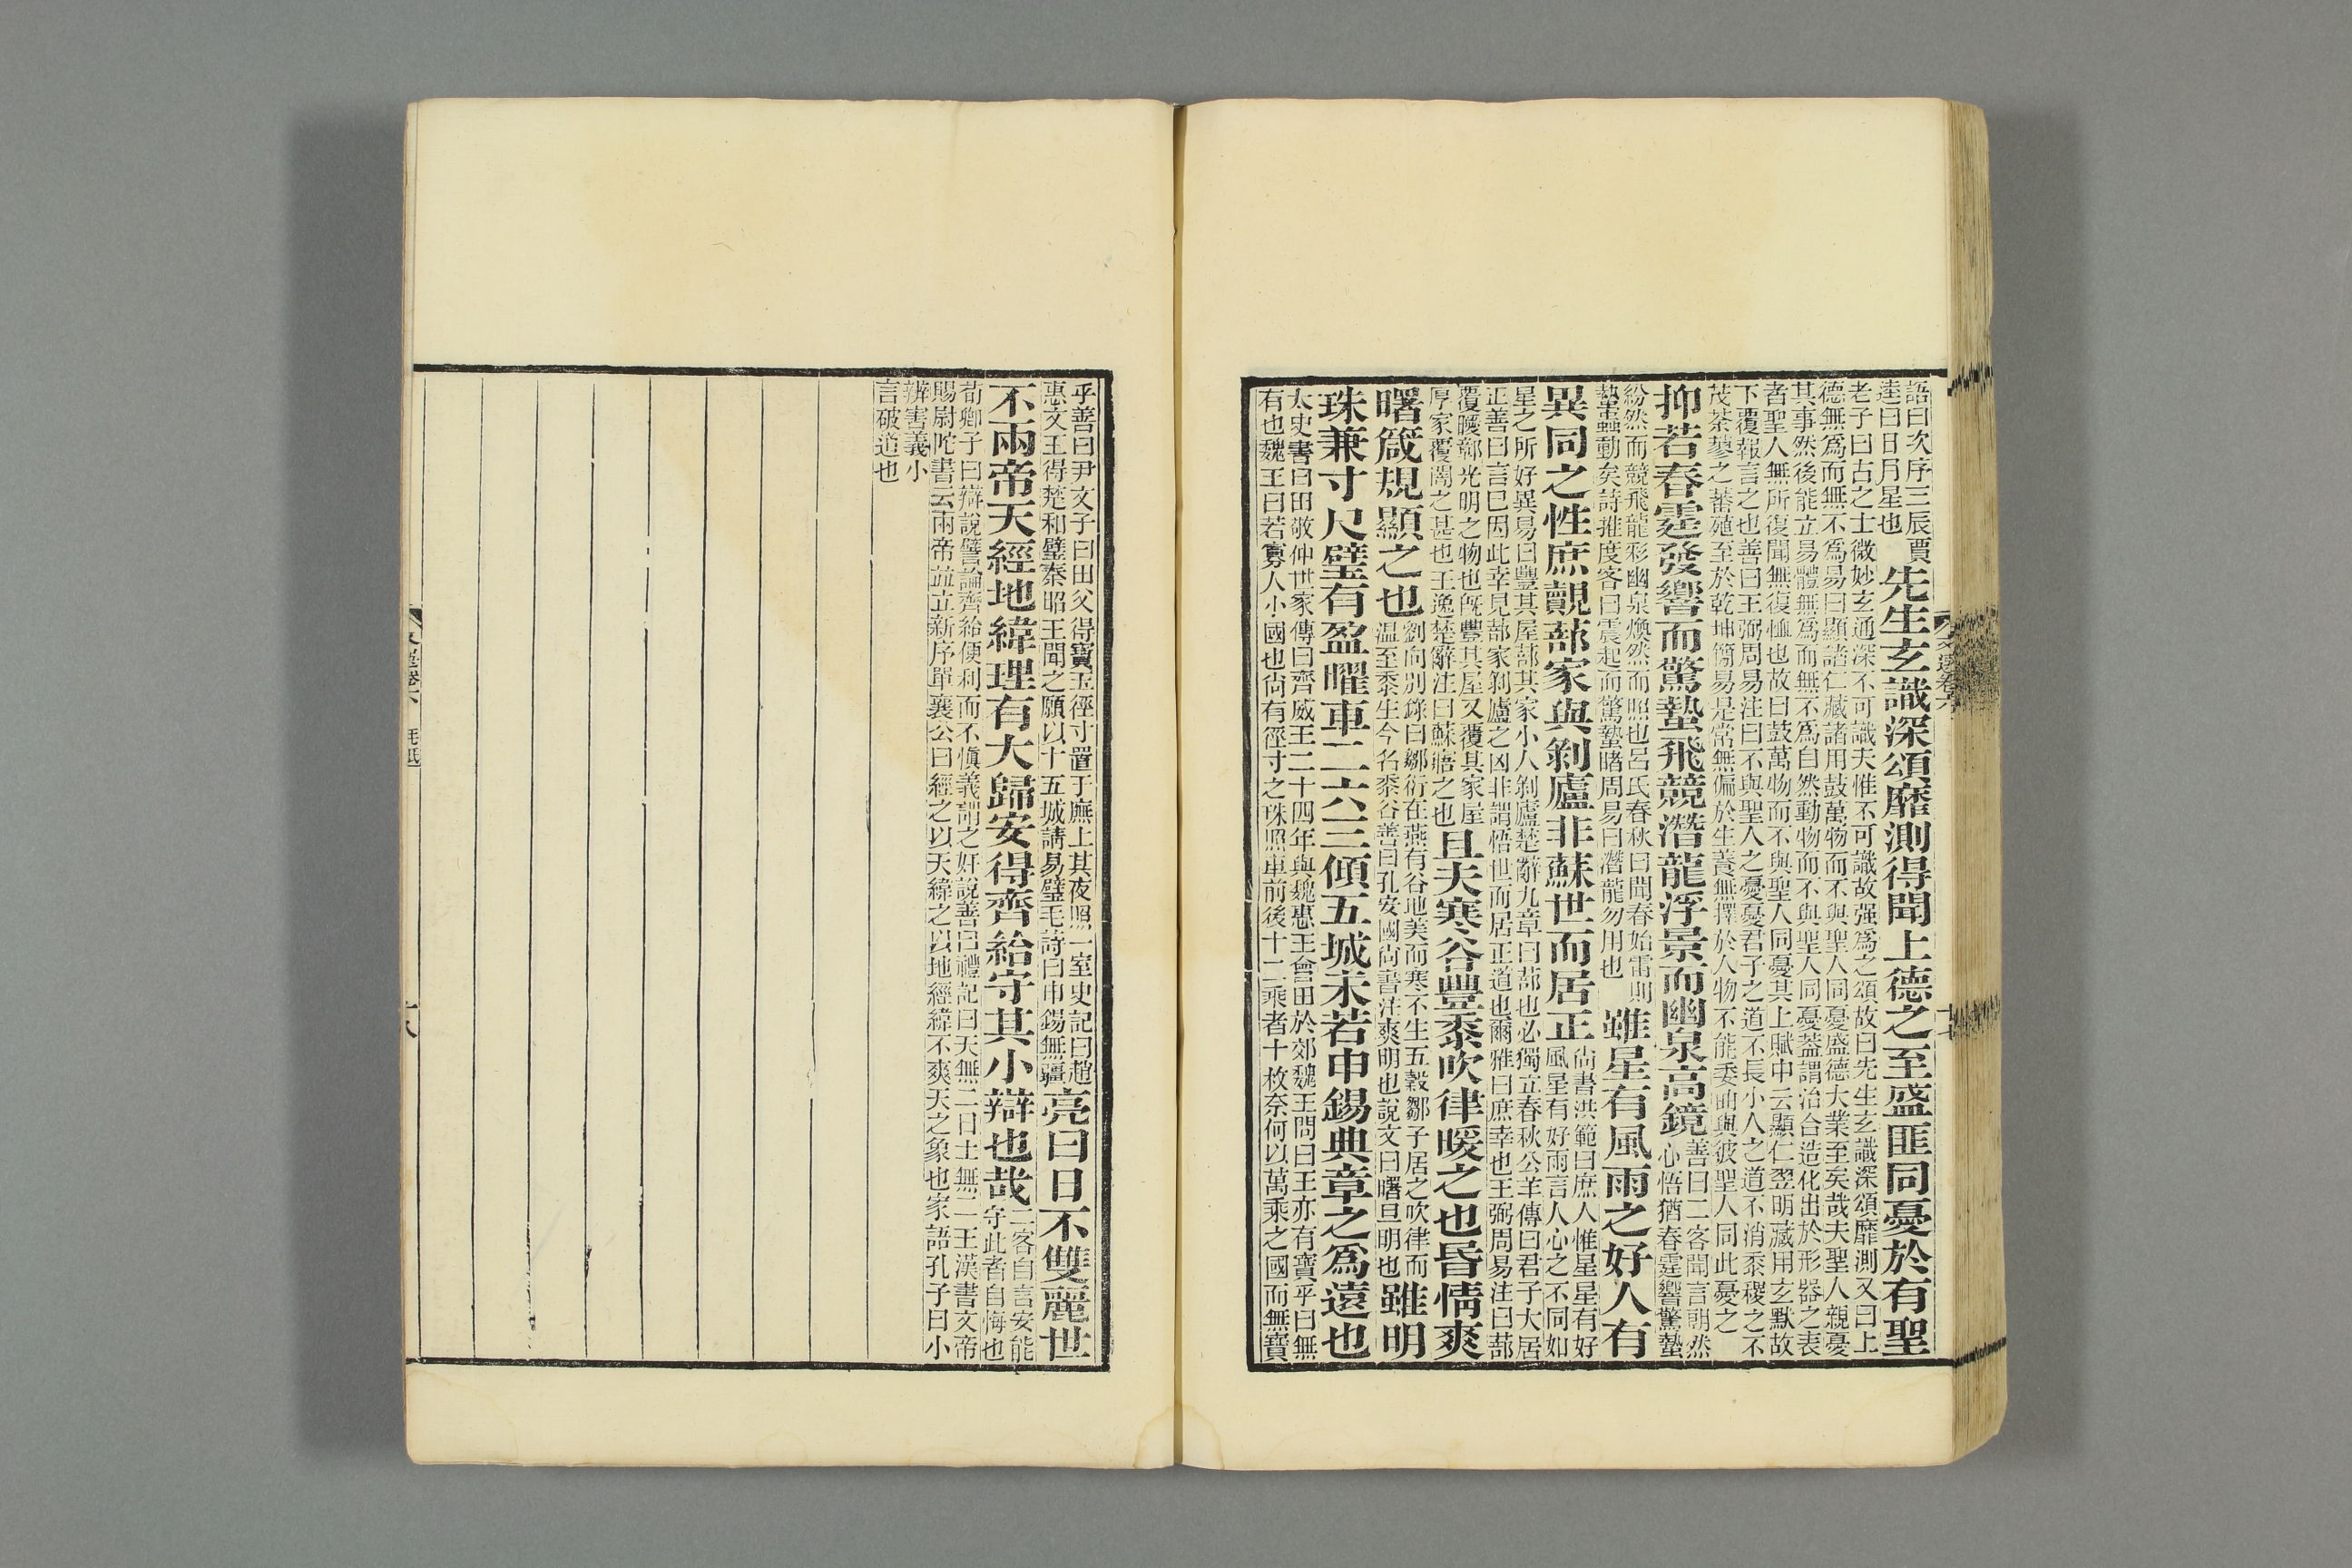 語曰次序三辰賈
逵曰日月星也
先生玄識深頌靡測得聞上德之至盛匪同憂於有聖
老子曰古之士微妙玄通深不可識夫惟不可識故强爲之頌故曰先生玄識深頌靡測又曰上
德無爲而無不爲易曰顯諸仁藏諸用鼓萬物而不與聖人同憂盛德大業至矣哉夫聖人親憂
其事然後能立易體無爲而無不爲自然動物而不與聖人同憂葢謂冶合造化出於形器之表
者聖人無所復聞無復恤也故曰鼓萬物而不與聖人同憂其上賦中云顯仁翌明藏用玄默故
下覆報言之也善曰王弼周易注曰不與聖人之憂憂君子之道不長小人之道不消黍稷之不
茂荼蓼之蕃殖至於乾坤簡易是常無偏於生養無擇於人物不能委曲與彼聖人同此憂之
抑若春霆發響而驚蟄飛競潛龍浮景而幽泉高鏡
善曰二客聞言朗然
心悟猶春霆響驚蟄
紛然而競飛龍彩幽泉煥然而照也呂氏春秋曰聞春始雷則
蟄蟲動矣詩推度客曰震起而驚蟄睹周易曰潛龍勿用也
雖星有風雨之好人有
異同之性庶覿蔀家與剝廬非蘇世而居正
尙書洪範曰庶人惟星星有好
風星有好雨言人心之不同如
星之所好異易曰豐其屋蔀其家小人剝廬楚辭九章曰蔀也必獨立春秋公羊傳曰君子大居
正善曰言巳因此幸見蔀家剝廬之凶非謂悟世而居正道也爾雅曰庶幸也王弼周易注曰蔀
覆曖鄣光明之物也旣豐其屋又覆其家屋
厚家覆闇之甚也王逸楚辭注曰蘇寤之也
且夫寒谷豐黍吹律暖之也昬情爽
曙箴規顯之也
劉向別錄曰鄒衍在燕有谷地美而寒不生五穀鄒子居之吹律而
温至黍生今名黍谷善曰孔安國尙書注爽明也說文曰曙旦明也
雖明
珠兼寸尺璧有盈曜車二六三傾五城未若申錫典章之爲遠也
太史書曰田敬仲世家傳曰齊威王二十四年與魏惠王會田於郊魏王問曰王亦有寶乎曰無
有也魏王曰若寡人小國也尙有徑寸之珠照車前後十二乘者十枚奈何以萬乘之國而無寶
文選卷六
十七
乎善曰尹文子曰田父得寶玉徑寸置于廡上其夜照一室史記曰趙
惠文王得楚和璧秦昭王聞之願以十五城請易璧毛詩曰申錫無疆
亮曰日不雙麗世
不兩帝天經地緯理有大歸安得齊給守其小辯也哉
二客自言安能
守此者自悔也
荀卿子曰辯說譬諭齊給便利而不愼義謂之奸說善曰禮記曰天無二日土無二王漢書文帝
賜尉陀書云兩帝並立新序單襄公曰經之以天緯之以地經緯不爽天之象也家語孔子曰小
辨害義小
言破道也
文選卷六
十八